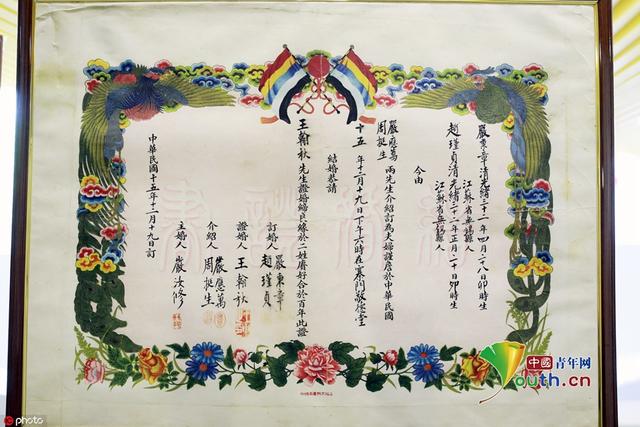 嚴東章清光緒三十一年四月二十八日卯時生
江蘇省無錫縣人
趙瑾貞清光緒三十二年正月二十日卯時生
江蘇省無錫縣人
今由
嚴應萬
周挺生
兩先生介紹訂為夫婦謹詹於中華民國
十五年十二月十九日下午六時在塞門敬德堂
結婚恭請
王翰秋先生證婚締良緣於二姓慶好合於百年此證
訂婚人
嚴東章
趙瑾貞
證婚人王翰秋
介紹人
嚴應萬
周挺生
主婚人嚴汝修
中華民國十五年十二月十九日訂
中国青年网
Youth.cn
photo